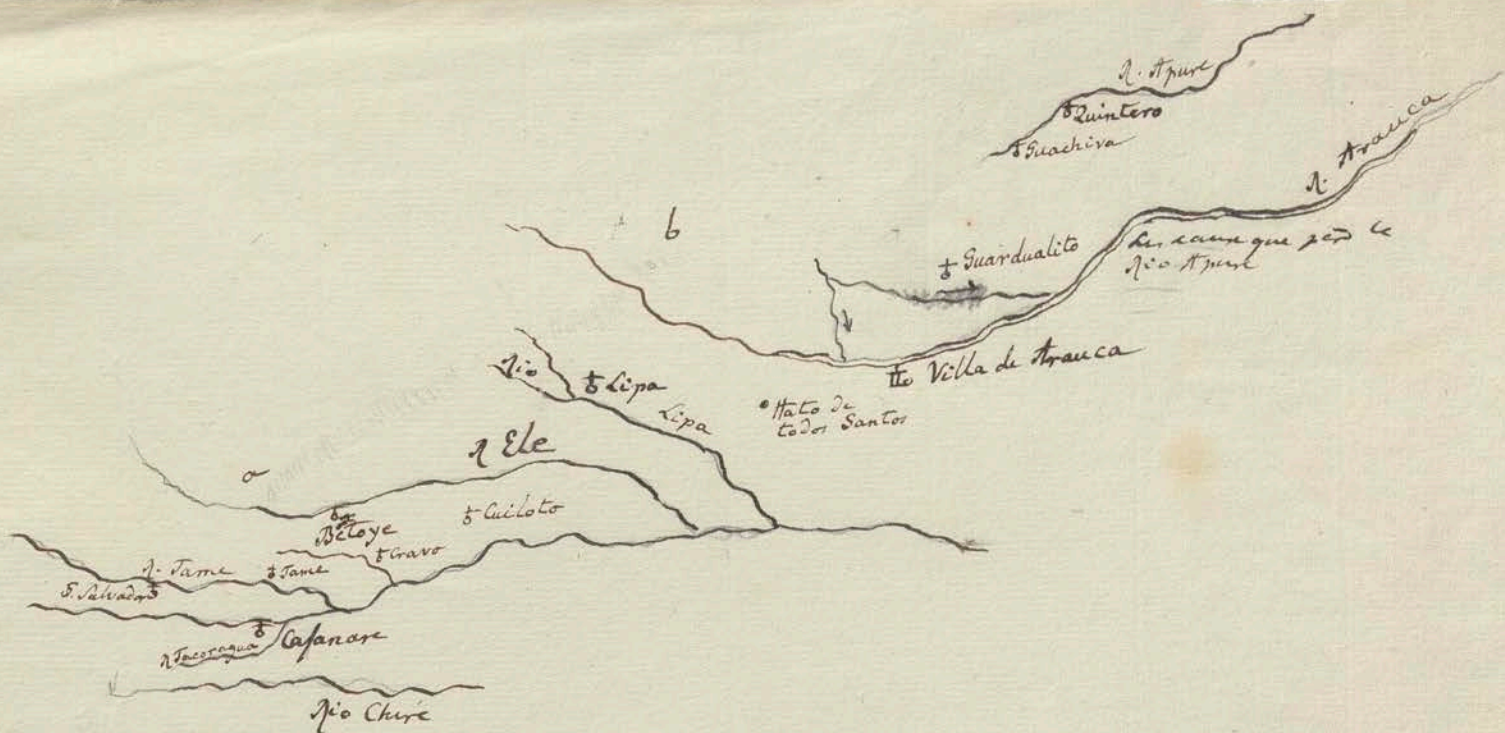 R. Apure
Quintero
Guachiva
R. Arauca
b
Guardualito
que
Rio Apure
Villa de Arauca
Rio
Lipa
Lipa
Hato de
todos Santos
a
R Ele
Cuiloto
Betoye
Cravo
R. Tame
Tame
S. Salvador
Casanare
R Tacoragua
Rio Chire